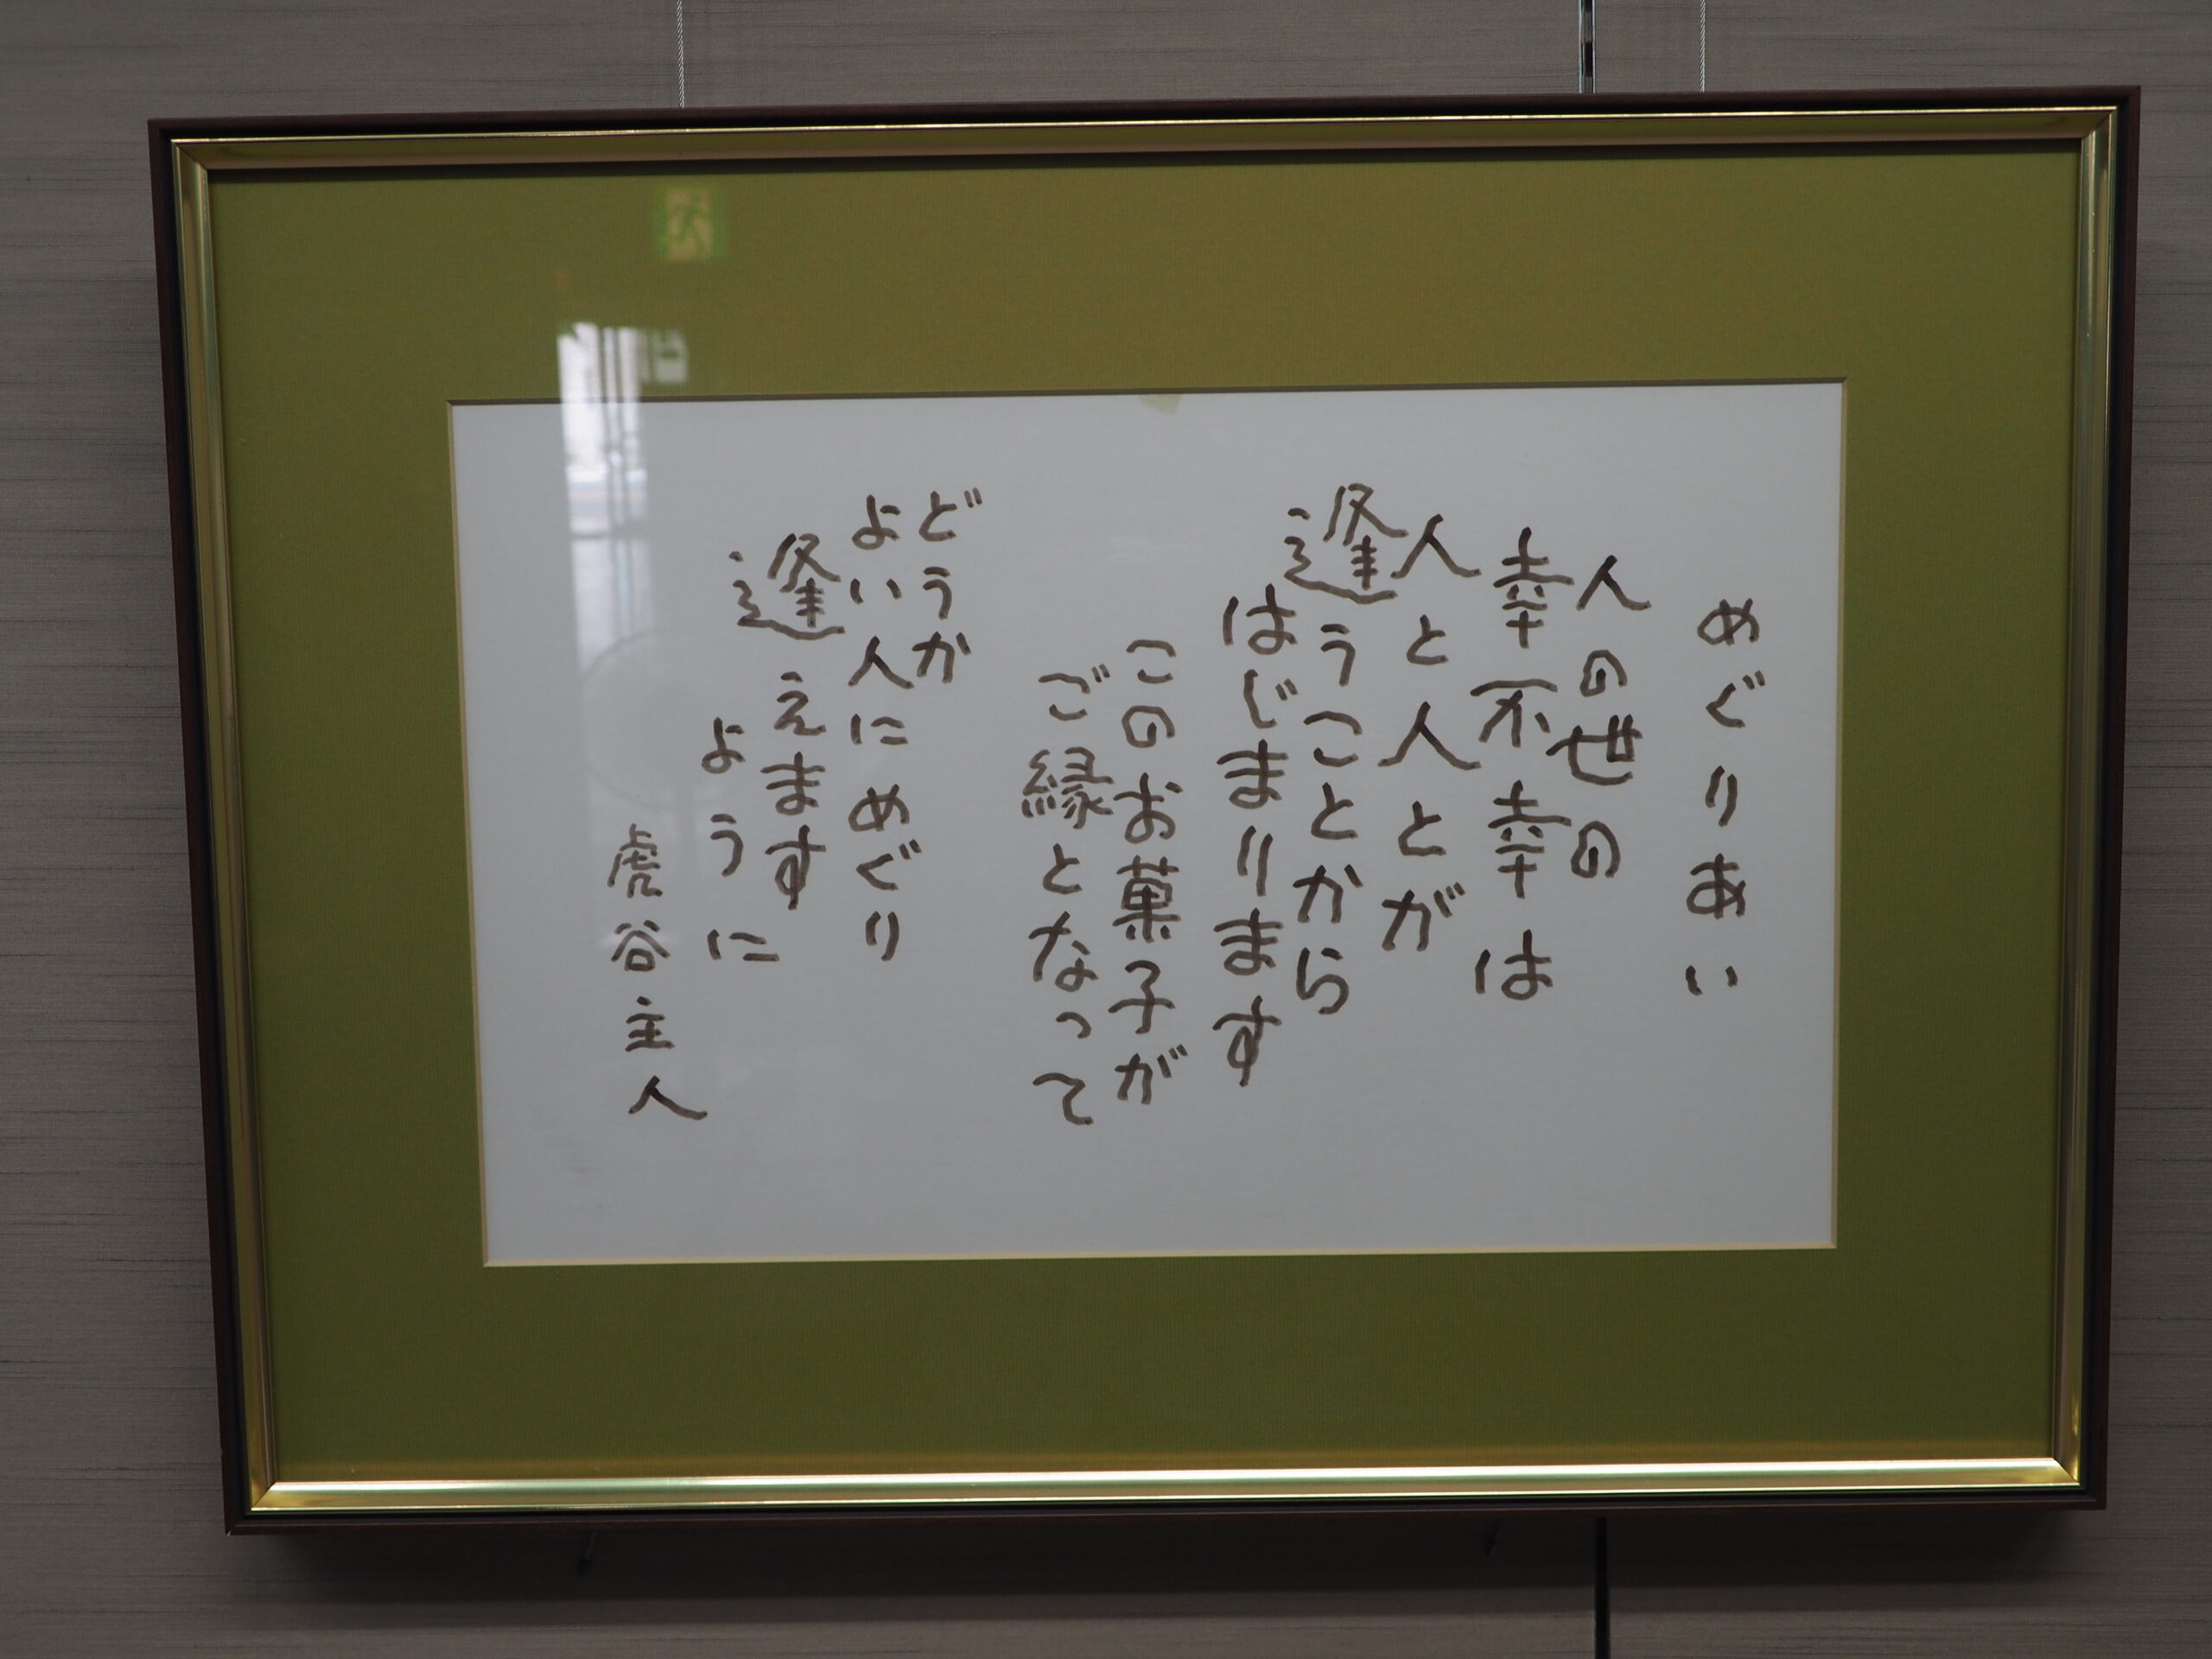 めぐりあい
人の世の
幸不幸は
人と人とが
逢うことから
はじまります
このお菓子が
ご縁となって
どうか
よい人にめぐり
逢えます
ように
虎谷主人